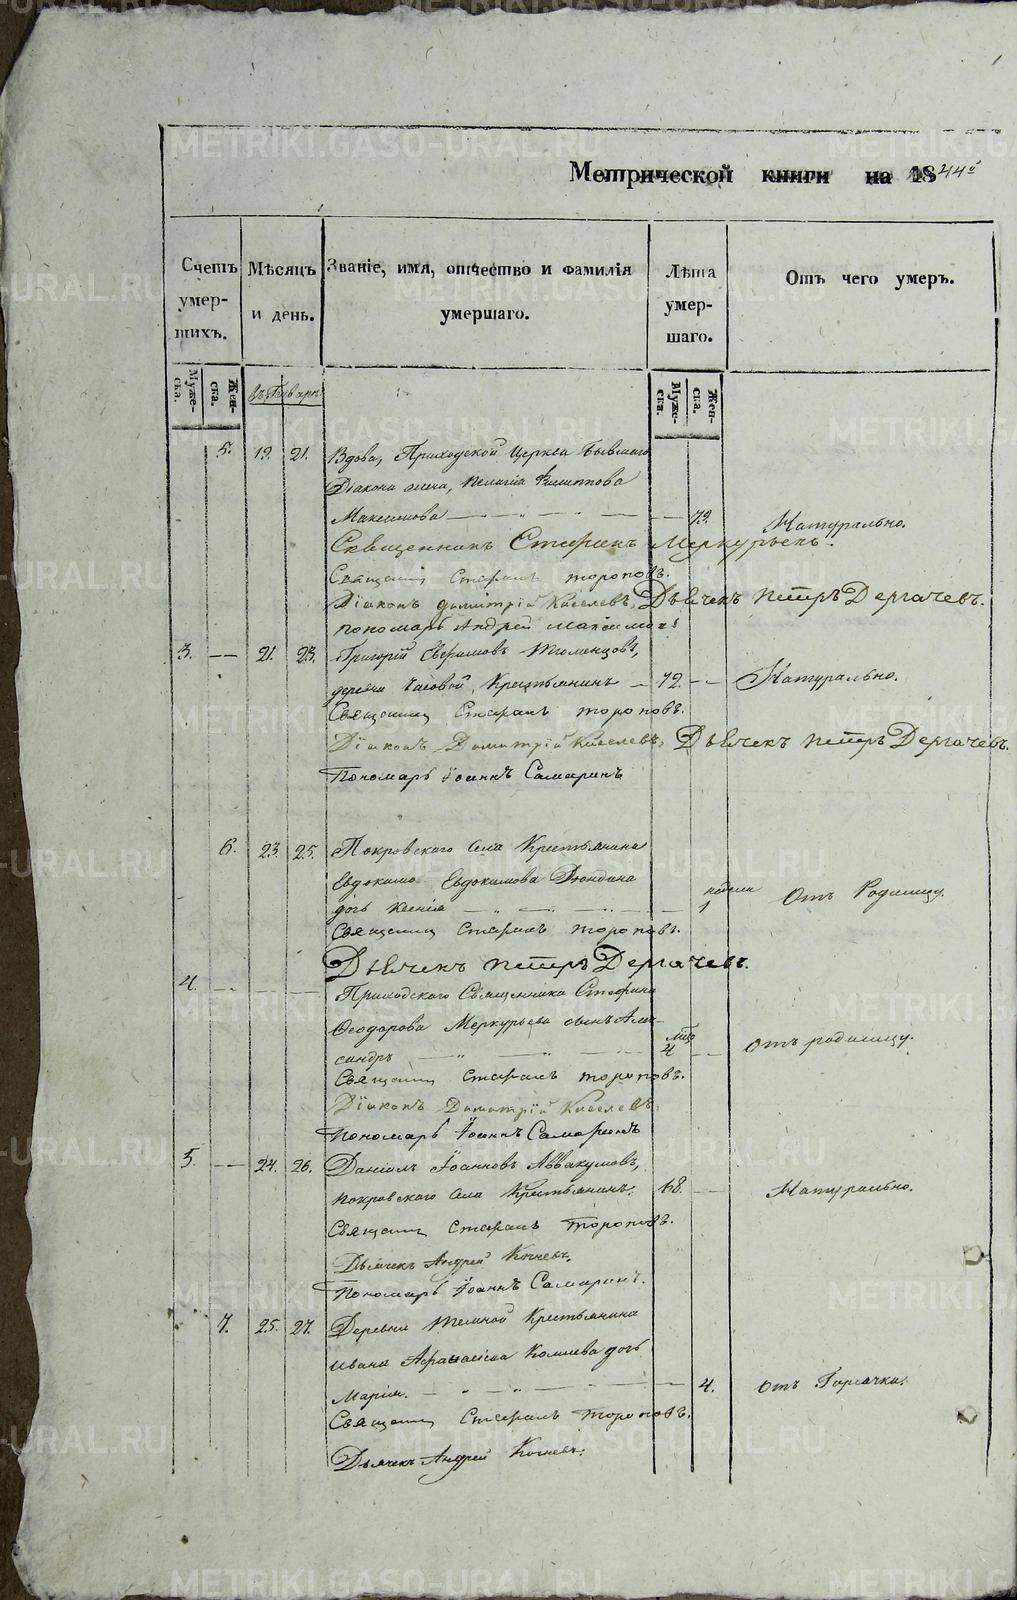 Метрической книги на 1844й
Счетъ умер-шихъ.
Мѣсяцъ и день.
Званіе, имя, отчество и фамилія умершаго.
Лѣта умер-шаго.
Отъ чего умеръ.
Муже-ска.
Жен-ска.
Муже-ска.
Жен-ска.
5. 19. 21. Вдова, Приходской Церкви бывшаго
Діакона жена, Пелагія Филиппова
Максимова 79. Натурально.
Священникъ Стефанъ Меркурьевъ.
Священникъ Стефанъ Тороповъ.
Діаконъ Димитрій Киселевъ, Дьячекъ Петръ Дергачевъ.
Пономарь Андрей
3. — 21. 23. Григорій Тюменцовъ,
деревни Часовой, Крестьянинъ — 72. — Натурально.
Священникъ Стефанъ Тороповъ.
Діаконъ Димитрій Киселевъ, Дьячекъ Петръ Дергачевъ.
Пономарь Іоаннъ Самаринъ
6. 23. 25. Покровскаго села Крестьянина
Евдокима Евдокимова
дочь Ксенія недели 1 Отъ Родимцу.
Священникъ Стефанъ Тороповъ.
Дьячекъ Петръ Дергачевъ.
4. — Приходскаго Священника Стефана
Феодорова Меркурьева сынъ Алек-
сандръ 4 — отъ родимцу.
Священникъ Стефанъ Тороповъ.
Діаконъ Димитрій Киселевъ.
Пономарь Іоаннъ Самаринъ
5. — 24. 26. Даніилъ Іоанновъ Аввакумовъ,
Покровскаго села Крестьянинъ. 68. — Натурально.
Священникъ Стефанъ Тороповъ.
Дьячекъ Андрей
Пономарь Іоаннъ Самаринъ.
7. 25. 27. Деревни Крестьянина
Ивана дочь
Марія. 4. отъ Горячки.
Священникъ Стефанъ Тороповъ.
Дьячекъ Андрей
METRIKI.GASO-URAL.RU